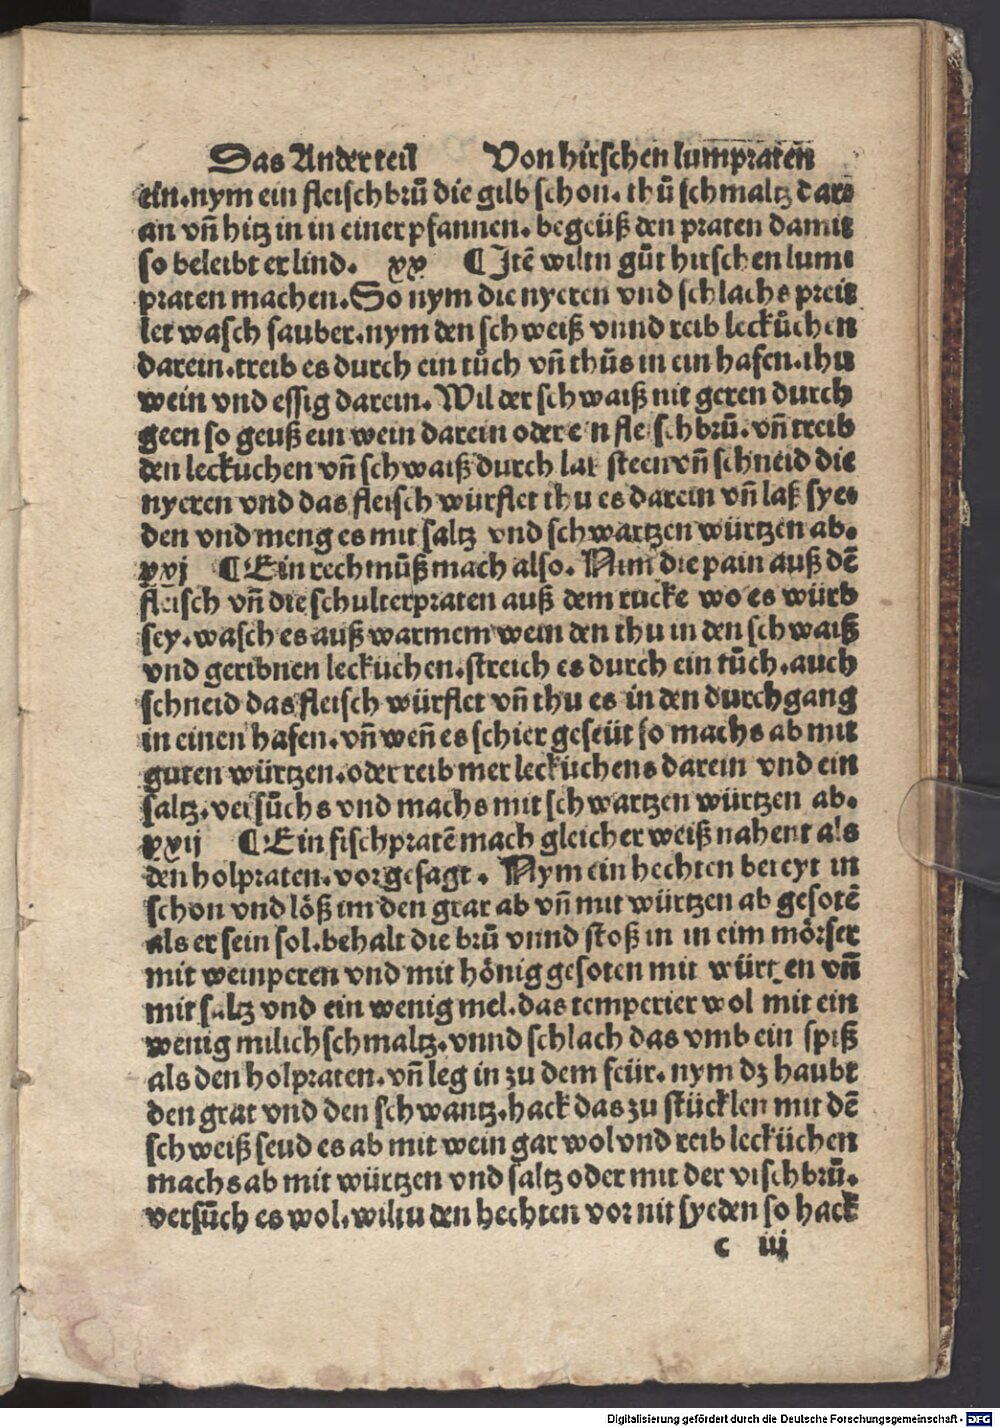 Das Ander teil Von hirschen lumpraten
ein. nym ein fleischbrů die gilb schon. thů schmaltz dar⸗
an vn̄ hitz in in einer pfannen. begeüß den praten damit
so beleibt er lind. xx ¶ Itē wiltu gůt hirschen lum⸗
praten machen. So nym die nyeren vnd schlachs preit
let wasch sauber. nym den schweiß vnnd reib leckůchen
darein. treib es durch ein tůch vn̄ thůs in ein hafen. thu
wein vnd essig darein. Wil der schwaiß nit geren durch
geen so geuß ein wein darein oder ein fleischbrů. vn̄ treib
den leckuchen vn̄ schwaiß durch laß steen vn̄ schneid die
nyeren vnd das fleisch würflet thu es darein vn̄ laß sye⸗
den vnd meng es mit saltz vnd schwartzen würtzen ab.
xxj ¶ Ein rechmůß mach also. Nim die pain auß dē
fleisch vn̄ die schulterpraten auß dem rucke wo es würb
sey. wasch es auß warmem wein den thu in den schwaiß
vnd geribnen leckuchen. streich es durch ein tůch. auch
schneid das fleisch würflet vn̄ thu es in den durchgang
in einen hafen. vn̄ wen̄ es schier geseüt so machs ab mit
guten würtzen. oder reib mer leckůchens darein vnd ein
saltz. versůchs vnd machs mit schwartzen würtzen ab.
xxij ¶ Ein fischpratē mach gleicher weiß nahent als
den holpraten. vorgesagt. Nym ein hechten bereyt in
schon vnd löß im den grat ab vn̄ mit würtzen ab gesotē
als er sein sol. behalt die brů vnnd stoß in in eim mörser
mit weinperen vnd mit hönig gesoten mit würtzen vn̄
mit saltz vnd ein wenig mel. das temperier wol mit ein
wenig milichschmaltz. vnnd schlach das vmb ein spiß
als den holpraten. vn̄ leg in zu dem feür. nym dz haubt
den grat vnd den schwantz. hack das zu stücklen mit dē
schweiß seud es ab mit wein gar wol vnd reib leckůchen
machs ab mit würtzen vnd saltz oder mit der vischbrů.
versůch es wol. wiltu den hechten vor nit syeden so hack
c iij
Digitalisierung gefördert durch die Deutsche Forschungsgemeinschaft - DFG